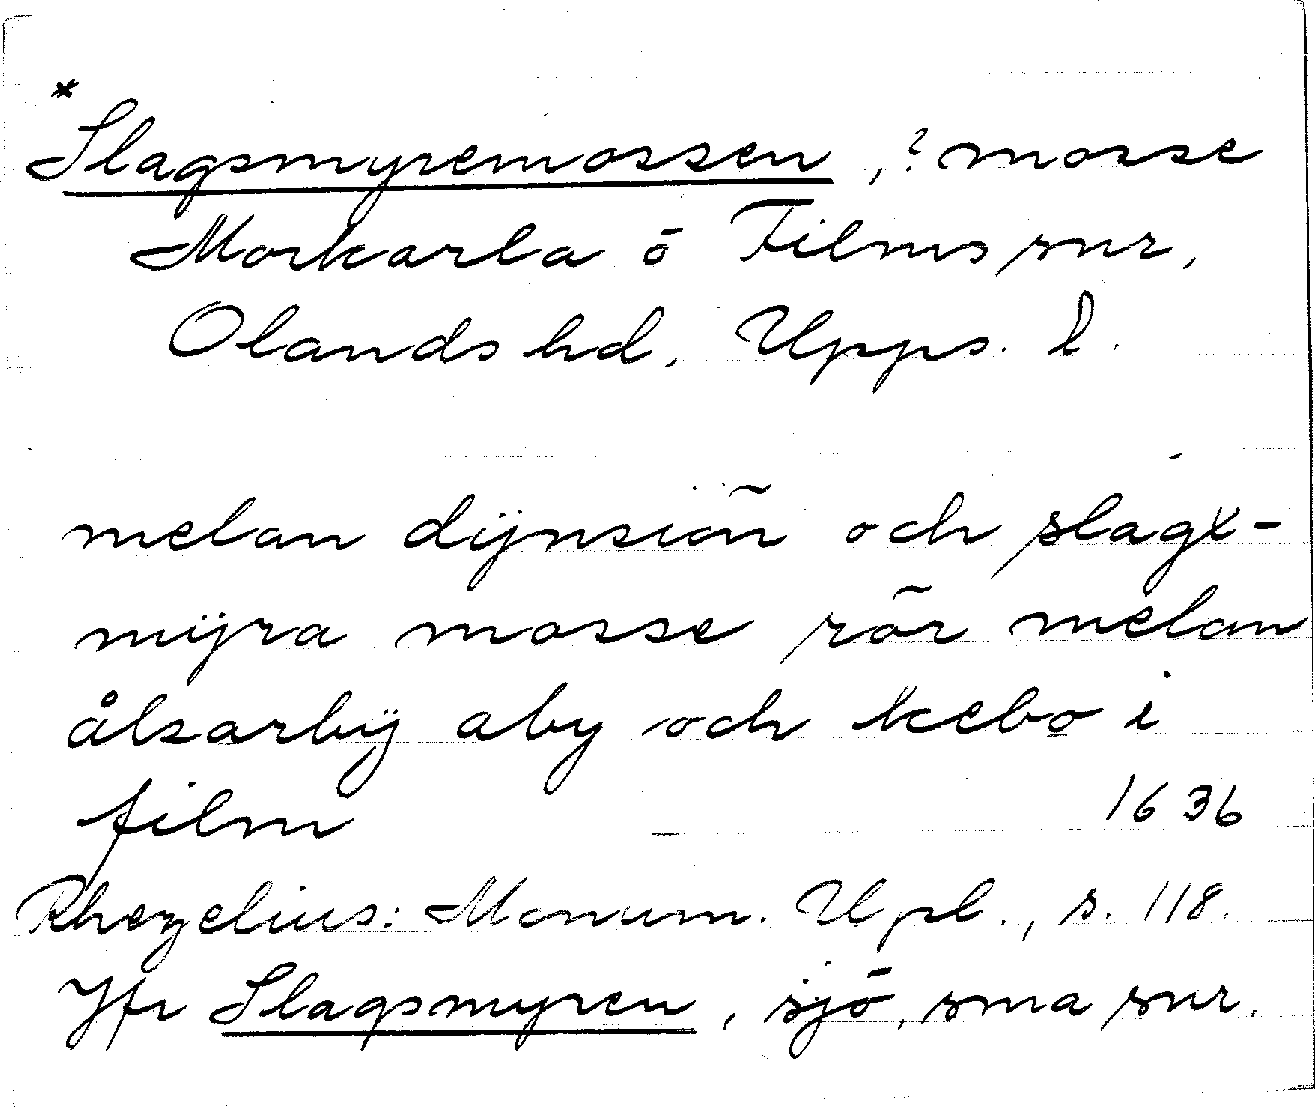 *
Slagsmyremossen, ? mosse
Morkarla o Films snr,
Olands hd, Upps. l.
melan dÿnsiön och slagx-
mÿra mosse rör melan
ålsarbÿ aby och kebo i
film 1636
Rhezelius: Monum. Upl., s. 118.
Jfr Slagsmyren, sjö, sma snr.